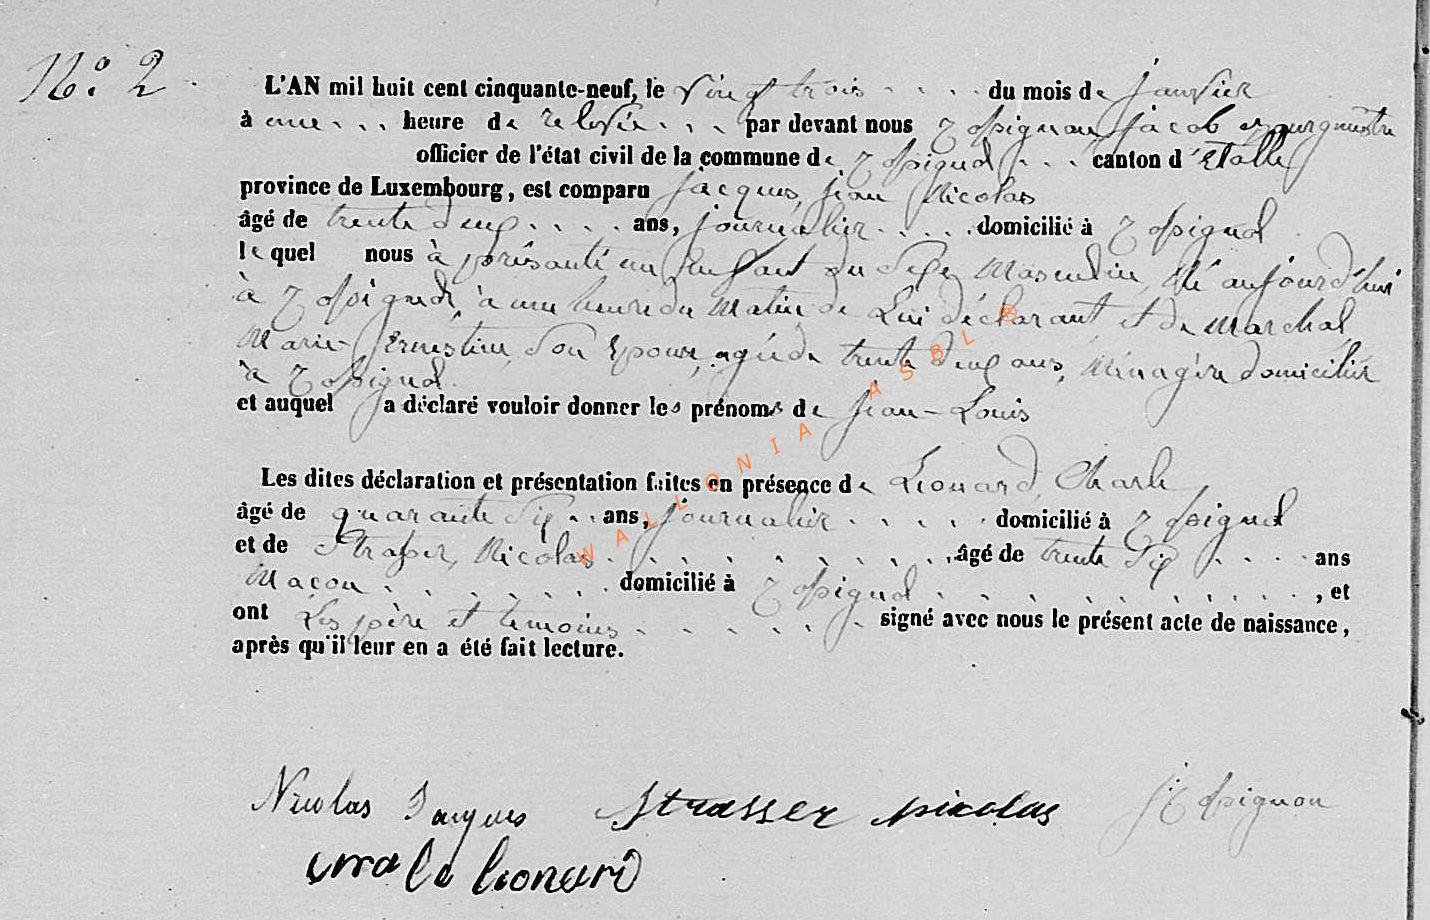 N.º 2
L'AN mil huit cent cinquante-neuf, le vingt trois du mois de janvier
à une heure de relevée par devant nous jacob Bourgmestre
officier de l'état civil de la commune de canton d'Etalle
province de Luxembourg, est comparu jacques, jean Nicolas
âgé de trente deux ans, journalier domicilié à
le quel nous à présenté un Enfant du Sexe Masculin, Né aujourd'hui
à à une heure du Matin de Lui déclarant et de Marchal
Marie-Ernestine Son Epouse, agée de trente deux ans, Ménagère domiciliée
à
et auquel a déclaré vouloir donner les prénoms de jean-Louis
Les dites déclaration et présentation faites en présence de Léonard, Charle
âgé de quarante Six ans, journalier domicilié à
et de Strasser, Nicolas âgé de trente Six ans
Maçon domicilié à , et
ont Les père et temoins signé avec nous le présent acte de naissance,
après qu'il leur en a été fait lecture.
Nicolas Jacques Strasser nicolas
leonard
WALLONIA ASBL ®